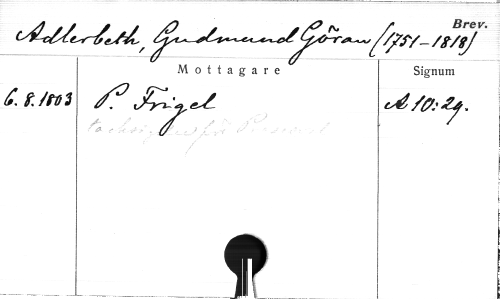 Brev.
Adlerbeth, Gudmund Göran (1751-1818)
Mottagare Signum
6.8.1803 P. Frigel A 10:29.